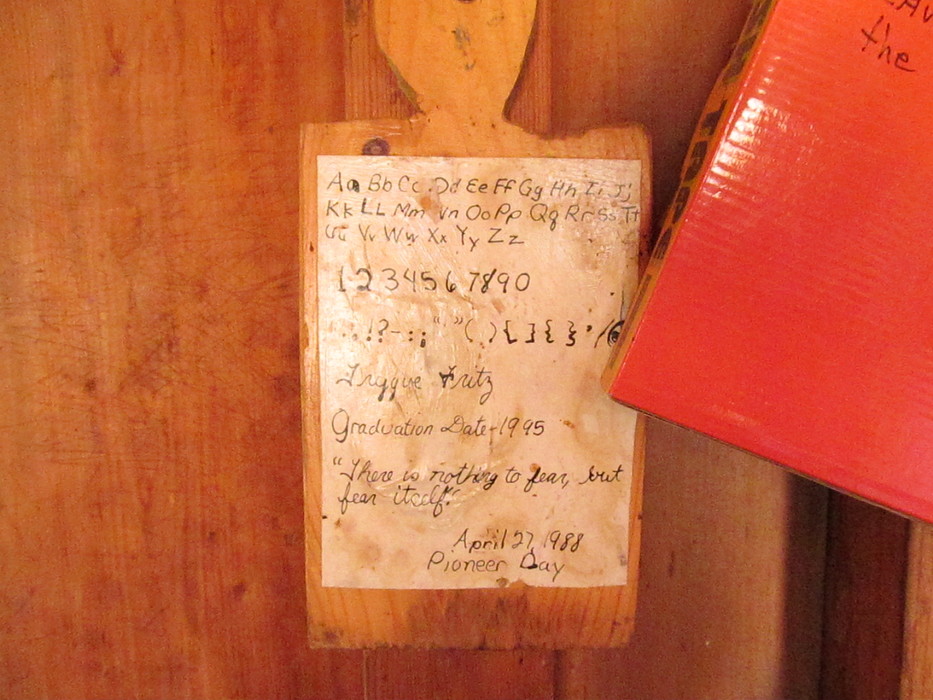 Aa Bb Cc Dd Ee Ff Gg Hh Ii Jj
Kk LL Mm Nn Oo Pp Qq Rr Ss Tt
Uu Vv Ww Xx Yy Zz
1 2 3 4 5 6 7 8 9 0
. , ! ? - : ; " " ( ) [ ] { } ' /
Trygve Fritz
Graduation Date-1995
"There is nothing to fear, but
fear itself."
April 27, 1988
Pioneer Day
the